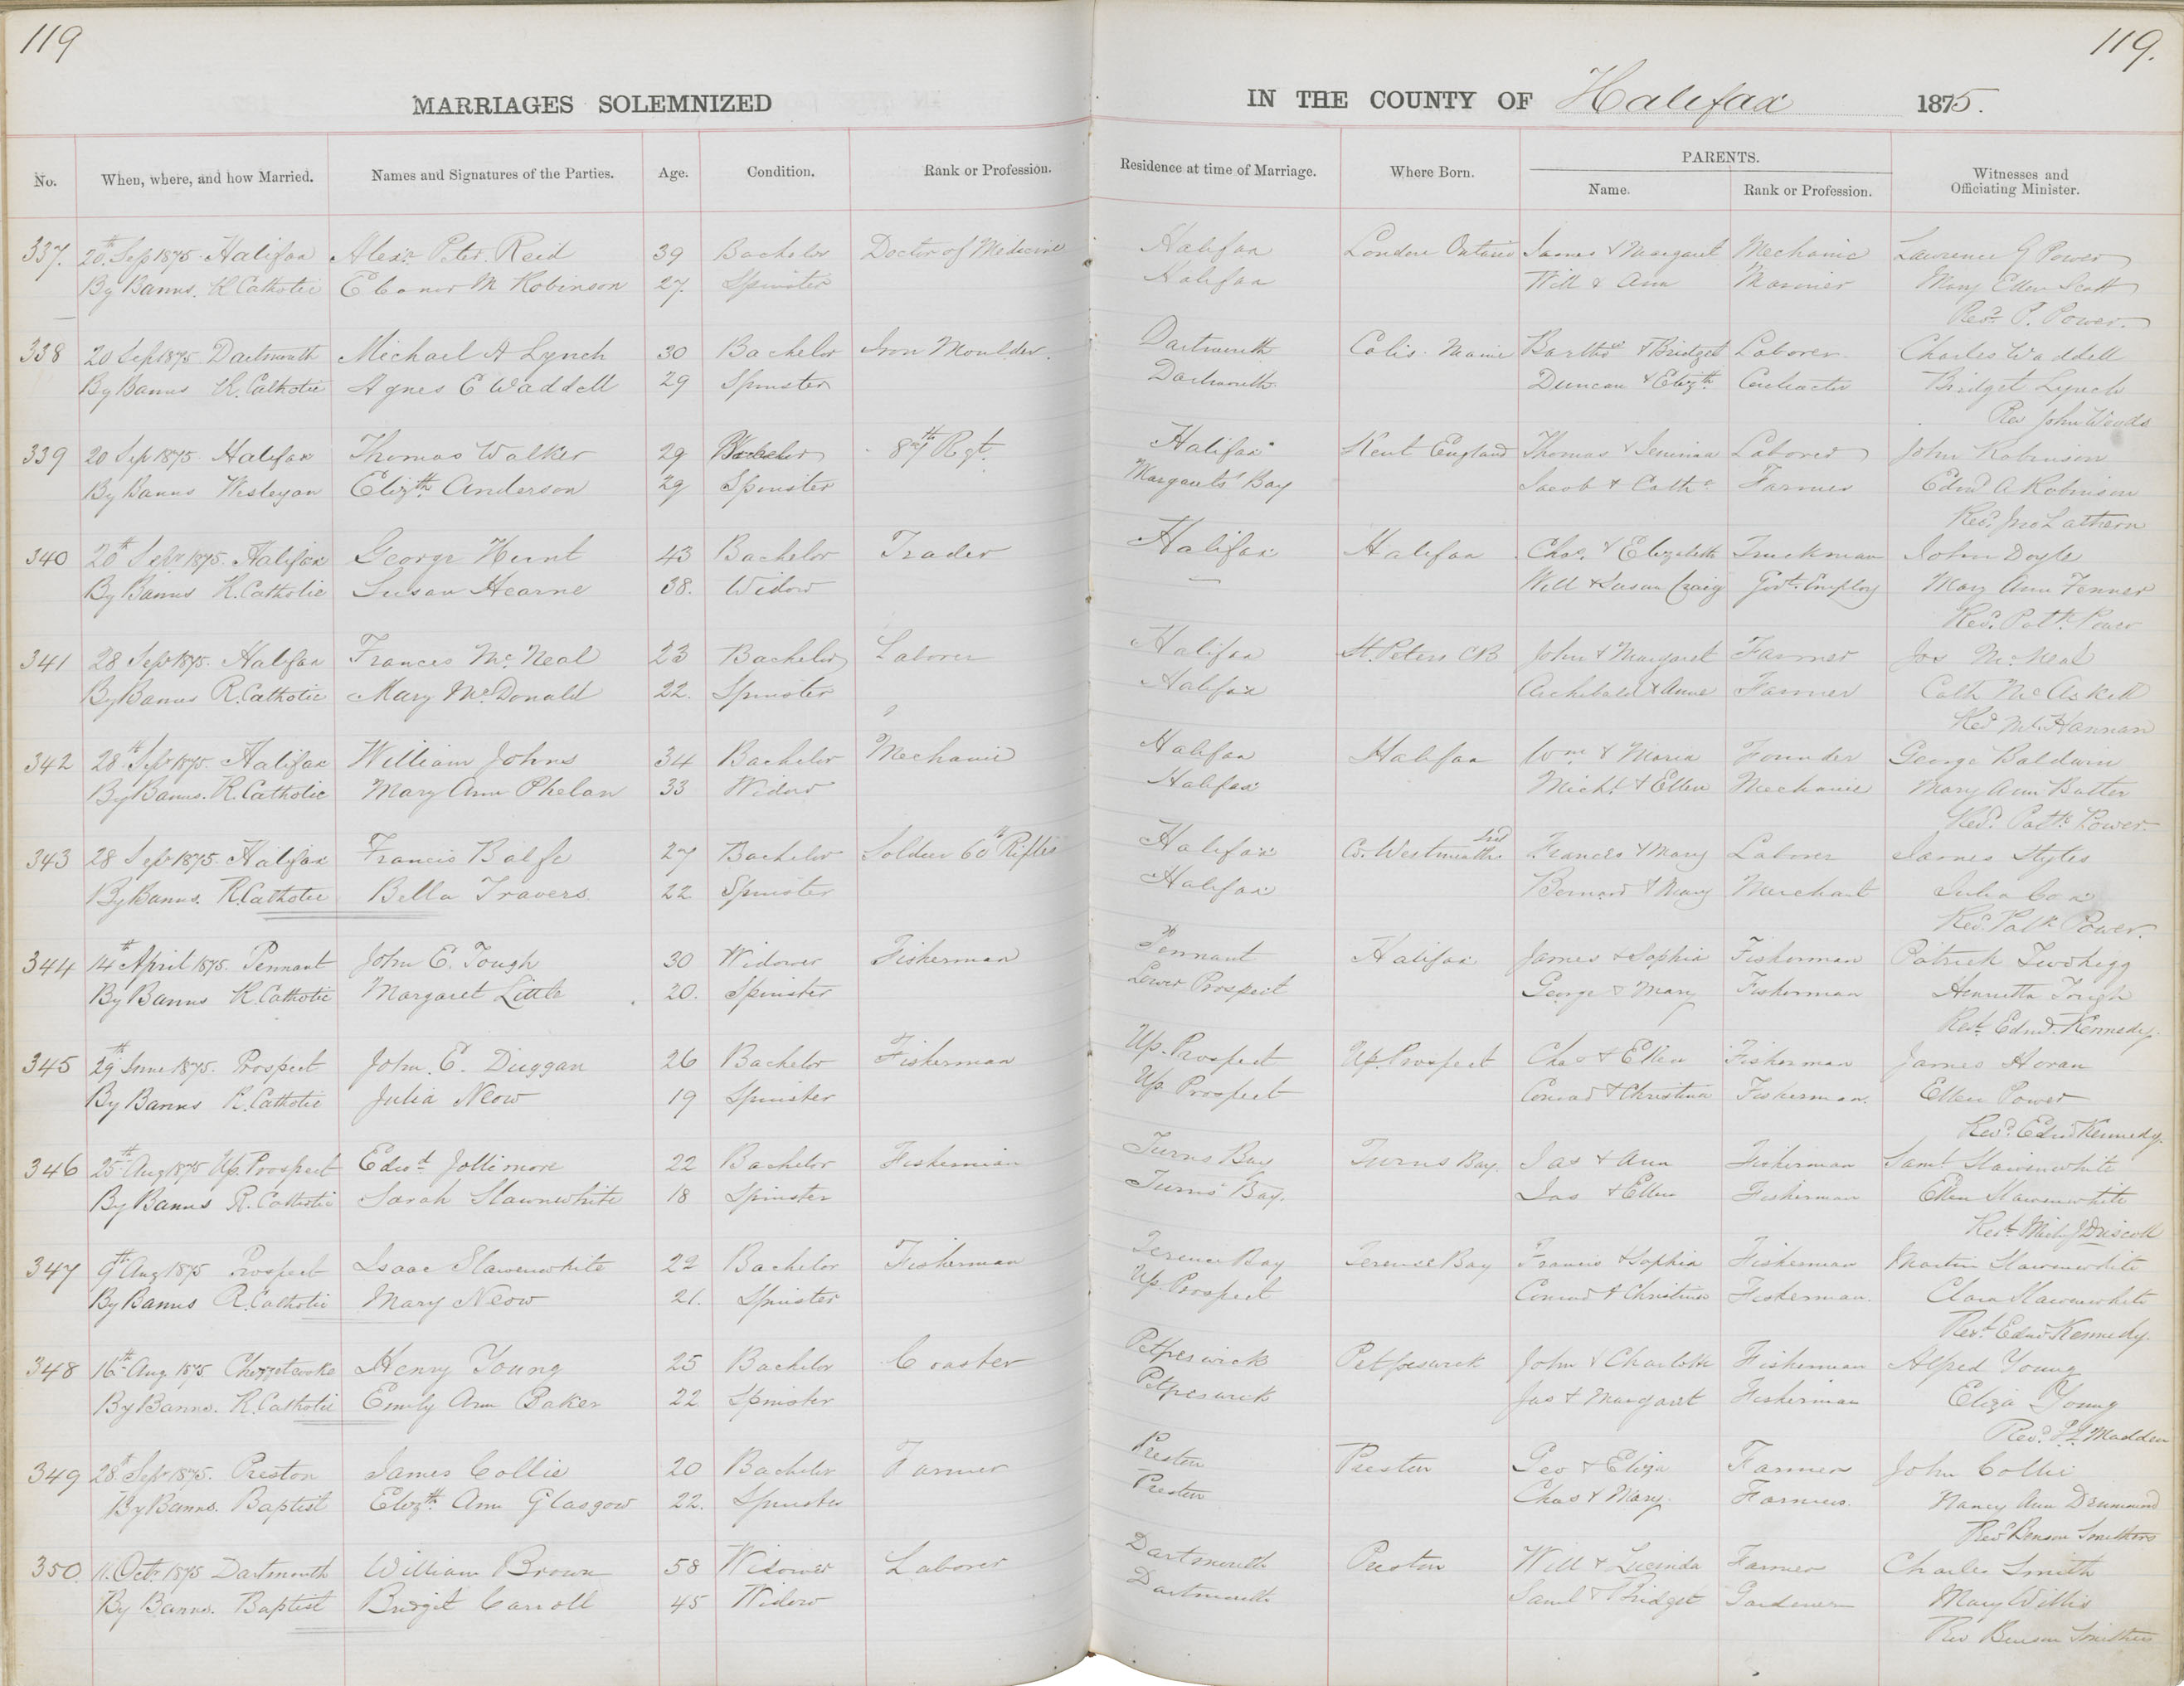 119
119.
MARRIAGES SOLEMNIZED IN THE COUNTY OF Halifax 1875.
No. When, where, and how Married. Names and Signatures of the Parties. Age. Condition. Rank or Profession. Residence at time of Marriage. Where Born. PARENTS. Name. Rank or Profession. Witnesses and Officiating Minister.
337. 20th Sep 1875 Halifax Alexr Peter Reid 39 Bachelor Doctor of Medicine Halifax London Ontario James & Margaret Mechanic Lawrence G Power
By Banns. R Catholic Eleanor M Robinson 27. Spinster Halifax Will & Ann Mariner Mary Ellen Scott
Revd. P. Power
338 20 Sep 1875 Dartmouth Michael A Lynch 30 Bachelor Iron Moulder. Dartmouth Calis Maine Bartho & Bridget Laborer Charles Waddell
By Banns R. Catholic Agnes E Waddell 29 Spinster Dartmouth Duncan & Elizth Contractor Bridget Lynch
Rev John Woods
339 20 Sep 1875 Halifax Thomas Walker 29 87th Rgt. Halifax Kent England Thomas & Jemima Laborer John Robinson
By Banns Wesleyan Elizth Anderson 29 Spinster Margarets Bay Jacob & Cathe Farmer Edwd A Robinson
Revd. Jno Lathern
340 20th Sepr 1875. Halifax George Hunt 43 Bachelor Trader Halifax Halifax Chas. & Elizabeth Truckman John Doyle
By Banns R. Catholic Susan Hearne 38. Widow — Will & Susan Craig Govt. Employ Mary Ann Fenner
Revd. Patk. Power
341 28 Sep 1875. Halifax Frances McNeal 23 Bachelor Laborer Halifax St. Peters CB John & Margaret Farmer Jas McNeal
By Banns R. Catholic Mary McDonald 22. Spinster Halifax Archibald & Anne Farmer Cath McAskill
Revd Ml. Hannan
342 28th Sep 1875. Halifax William Johns 34 Bachelor Mechanic Halifax Halifax Wm & Maria Founder George Baldwin
By Banns. R. Catholic Mary Ann Phelan 33 Widow Halifax Michl & Ellen Mechanic Mary Ann Butler
Revd. Patk Power.
343 28 Sep 1875. Halifax Francis Balfe 27 Bachelor Soldier 60th Rifles Halifax Co. Westmeath Ireld Frances & Mary Laborer James Styles
By Banns. R. Catholic Bella Travers. 22 Spinster Halifax Bernard & Mary Merchant Julia Cox
Revd Patk Power.
344 14th April 1875. Pennant John E. Tough 30 Widower Fisherman Pennant Halifax James & Sophia Fisherman Patrick Twohigg
By Banns R. Catholic Margaret Little 20. Spinster Lower Prospect George & Mary Fisherman Henrietta Tough
Revd. Edwd. Kennedy.
345 29th June 1875. Prospect John. E. Duggan 26 Bachelor Fisherman Up. Prospect Up. Prospect Chas & Ellen Fisherman James Horan
By Banns R. Catholic Julia Neow 19 Spinster Up. Prospect Conrad & Christina Fisherman. Ellen Power
Revd. Edwd Kennedy.
346 25th Aug 1875 Up. Prospect Edwd Jollimore 22 Bachelor Fisherman Turns Bay Turns Bay. Jas & Ann Fisherman Saml Slawenwhite
By Banns R. Catholic Sarah Slawnwhite 18 Spinster Turns Bay. Jas & Ellen Fisherman Ellen Slawenwhite
Revd. Driscoll
347 9th Aug 1875 Prospect Isaac Slawenwhite 22 Bachelor Fisherman Terence Bay Terence Bay Francis & Sophia Fisherman Martin Slawenwhite
By Banns R. Catholic Mary Neow 21. Spinster Up. Prospect Conrad & Christina Fisherman. Clara Slawenwhite
Revd. Edwd Kennedy.
348 16th Aug 1875 Chezzetcooke Henry Young 25 Bachelor Coaster Petpeswick Petpeswick John & Charlotte Fisherman Alfred Young
By Banns. R. Catholic Emily Ann Baker 22 Spinster Petpeswick Jas & Margaret Fisherman Eliza Young
Revd. Madden
349 28th Sep 1875. Preston James Collie 20 Bachelor Farmer Preston Preston Geo & Eliza Farmer John Collie
By Banns. Baptist Elizth. Ann Glasgow 22. Spinster Preston Chas & Mary. Farmer. Nancy Ann Drummond
Revd Benson Smithers
350. 11. Octr 1875 Dartmouth William Brown 58 Widower Laborer Dartmouth Preston Will & Lucinda Farmer Charles Smith
By Banns. Baptist Bridget Carroll 45 Widow Dartmouth Saml & Bridget Gardener Mary Willis
Rev Benson Smithers